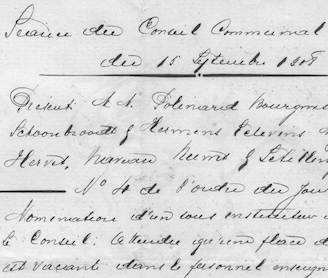 Séance du Conseil Communal
du 15 Septembre 1908
Présents M. M. Polinard Bourgme
Schoonbroodt & Hermens Echevins
Hervet, Marnan
No 4 de l'ordre du jour
Nomination d'un sous instituteur
Le Conseil: Attendu qu'une place d
est vacante dans le personnel enseign